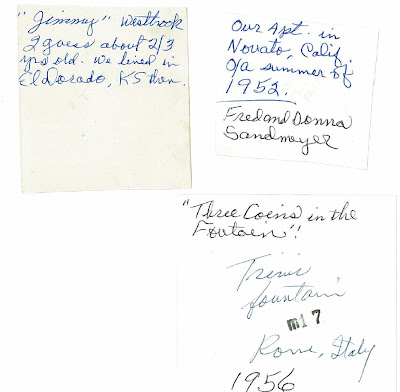 "Jimmy" Westbrook
I guess about 2/3
yrs old. We lived in
El Dorado, KS then.
Our Apt. in
Novato, Calif.
o/a summer of
1952.
Fred and Donna
Sandmeyer
"Three Coins in the
Foutain"!
Trivie
fountain
7
Rome, Italy
1956